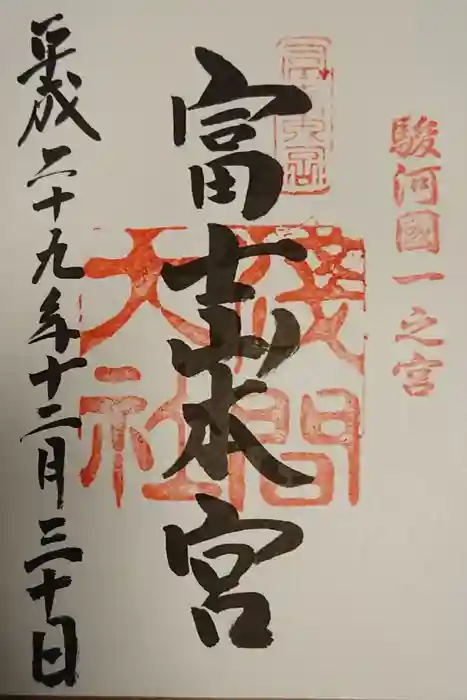 駿河國一之宮
富士山本宮
淺間大社
平成二十九年十二月三十日